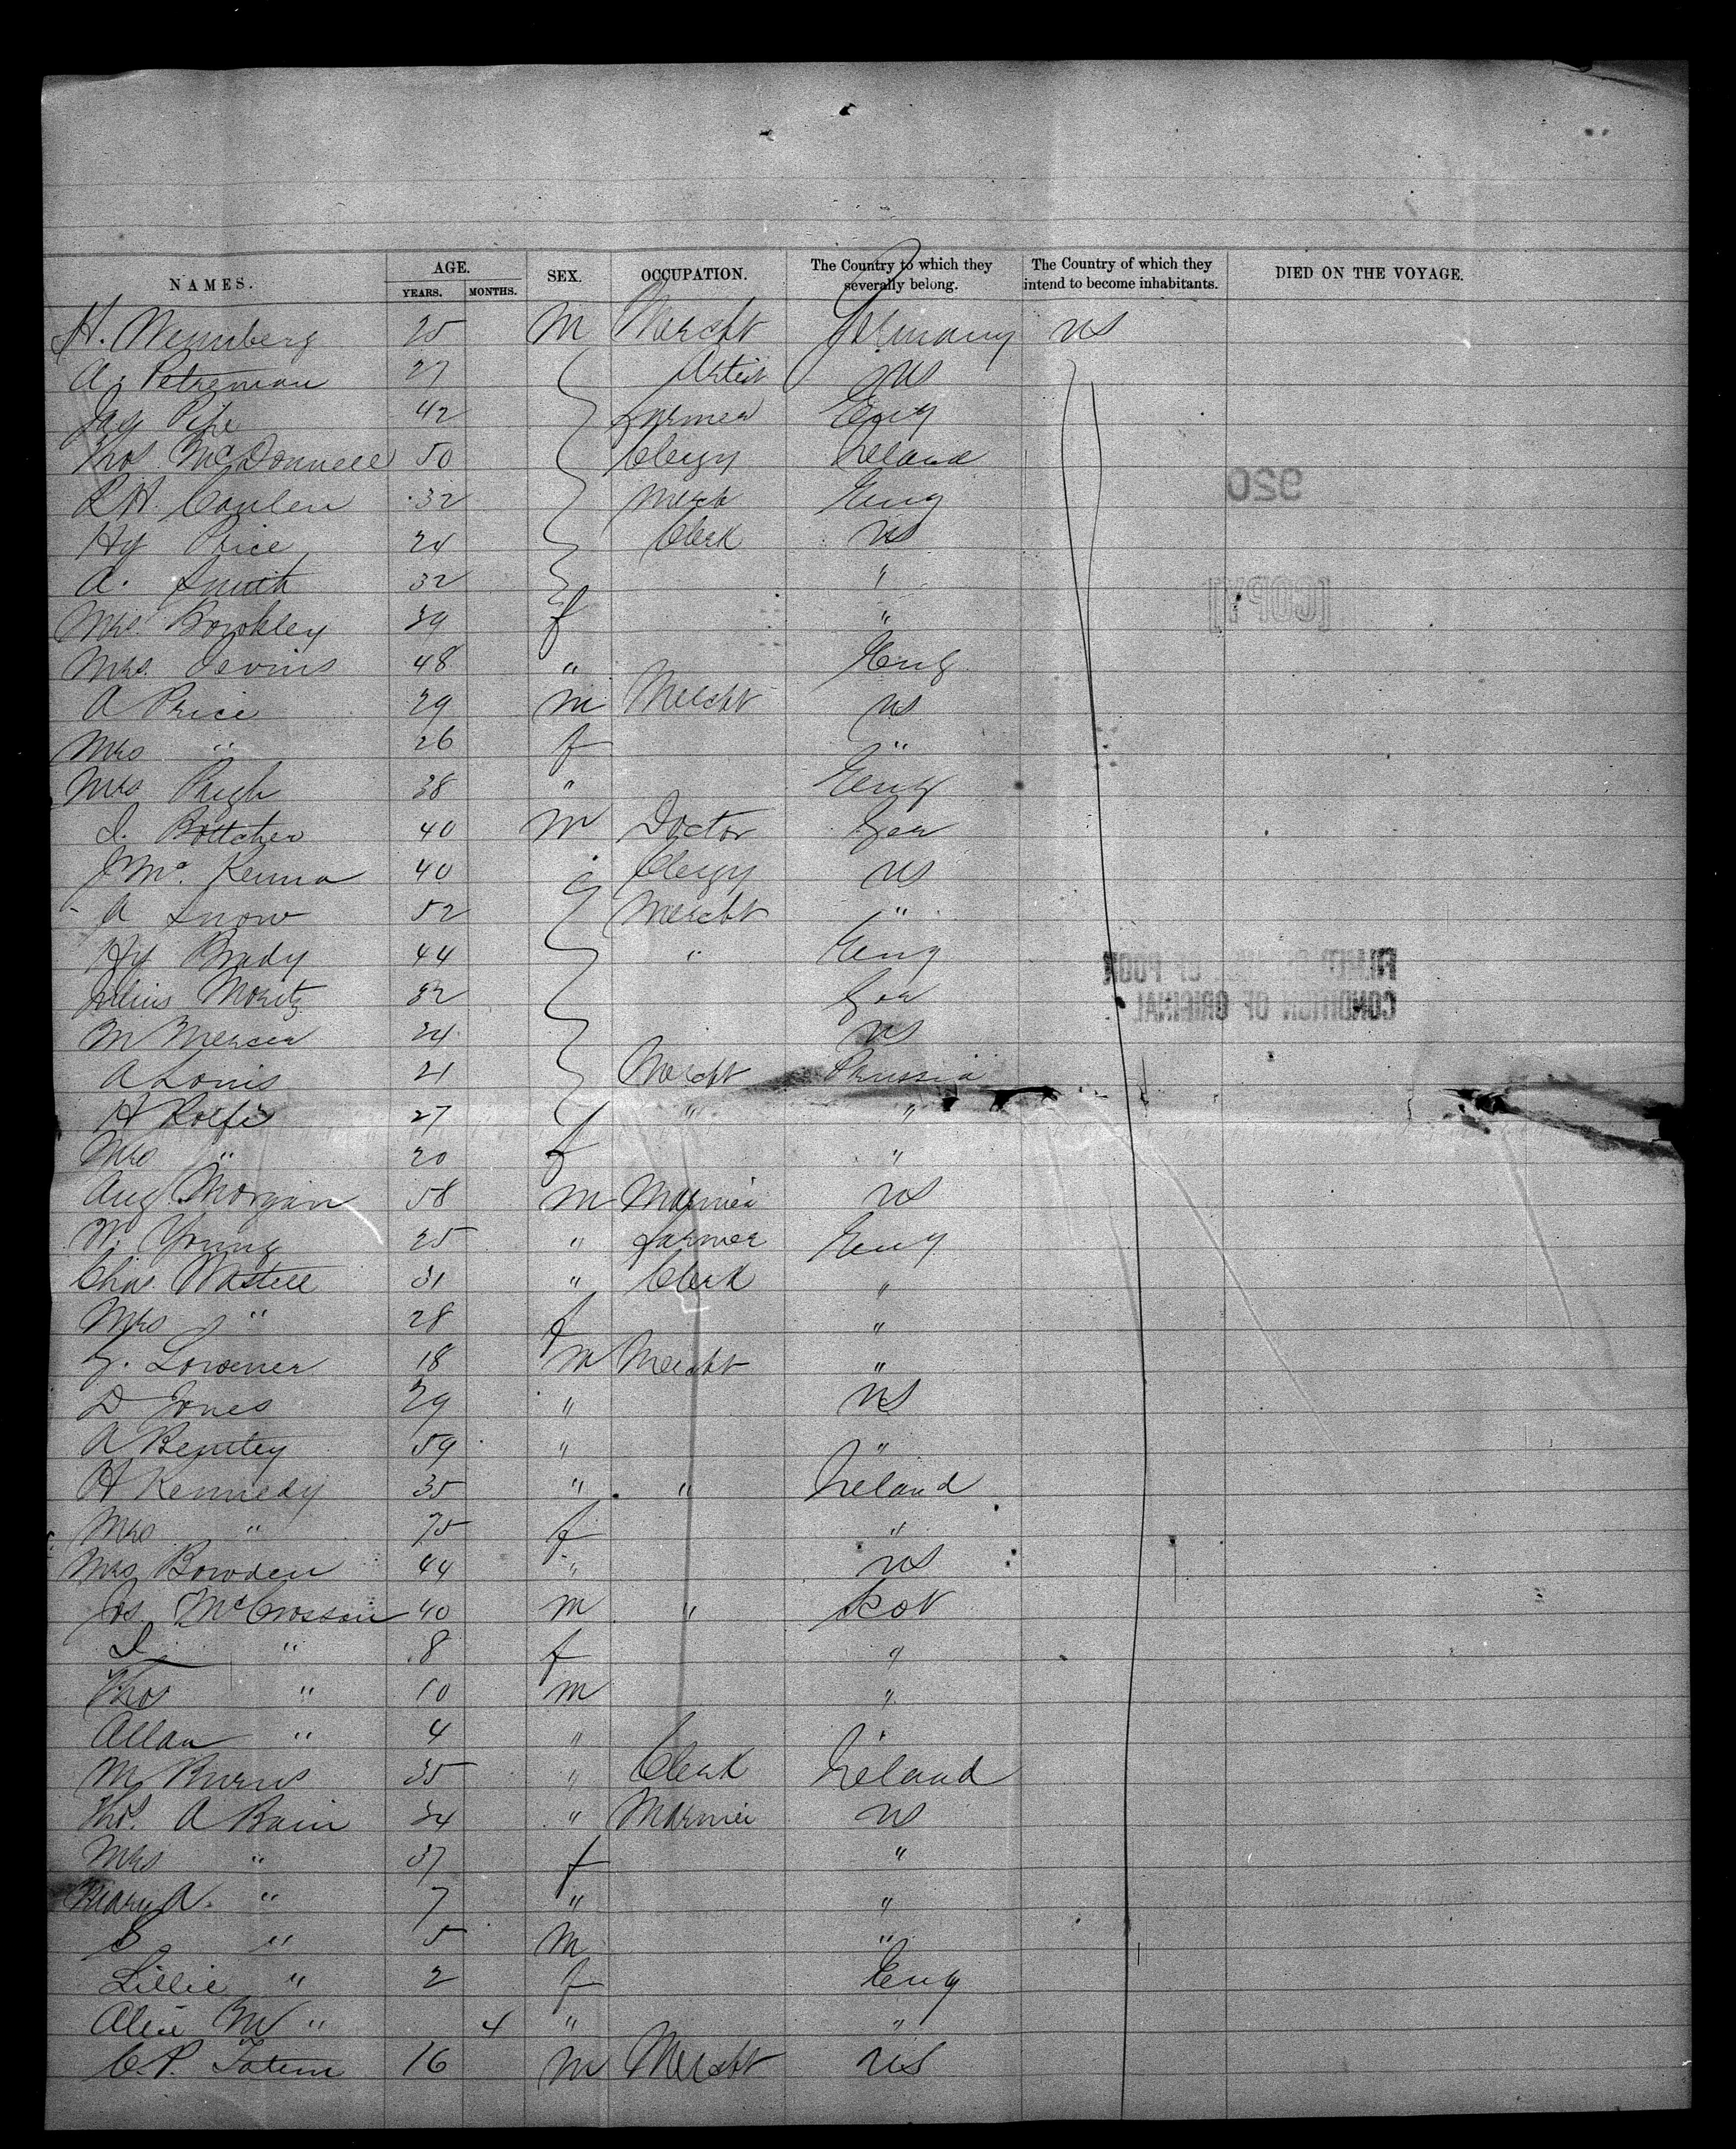 NAMES. AGE. YEARS. MONTHS. SEX. OCCUPATION. The Country to which they severally belong. The Country of which they intend to become inhabitants. DIED ON THE VOYAGE.
H. 25 M Mercht Germany US
A. Petreman 27 Artist US
Jas Pipe 42 Farmer Eng
Thos McDonnell 50 Clergy Ireland
R.H. 32 Merch Eng
920
Hy Price 24 Clerk US
A. Smith 32 "
[COPY]
Mrs. 39 f "
Mrs. Jevins 48 " Eng
A Price 29 M Mercht US
Mrs " 26 f "
Mrs Pugh 38 " Eng
Bottcher 40 M Doctor Ger
J Mc. Kenna 40 Clergy US
A Snow 52 Mercht "
Hy Brady 44 " Eng
FILMED BECAUSE OF POOR
CONDITION OF ORIGINAL
Julius Moritz 32 Ger
M Mercer 24 US
A Louis 21 Mercht Prussia
H Rolfes 27 " "
Mrs " 20 f "
Aug Morgan 58 M Mariner US
W. Young 25 " Farmer Eng
Chas. Wastell 31 " Clerk "
Mrs " 28 f "
G. 18 M Mercht "
D Jones 29 " US
A Bentley 59 " "
H Kennedy 35 " " Ireland
Mrs " 75 f "
Mrs Bowden 44 " US
Jos. McCrossan 40 M " Scot
" 8 f "
Thos " 10 M "
Allan " 4 " "
M Burns 35 " Clerk Ireland
Thos. A Bain 34 " Mariner US
Mrs " 37 f "
Mary A. " 7 " "
S " 5 M "
Lillie " 2 f Eng
Alice M " 4 " "
C.P. Tatem 16 M Mercht US